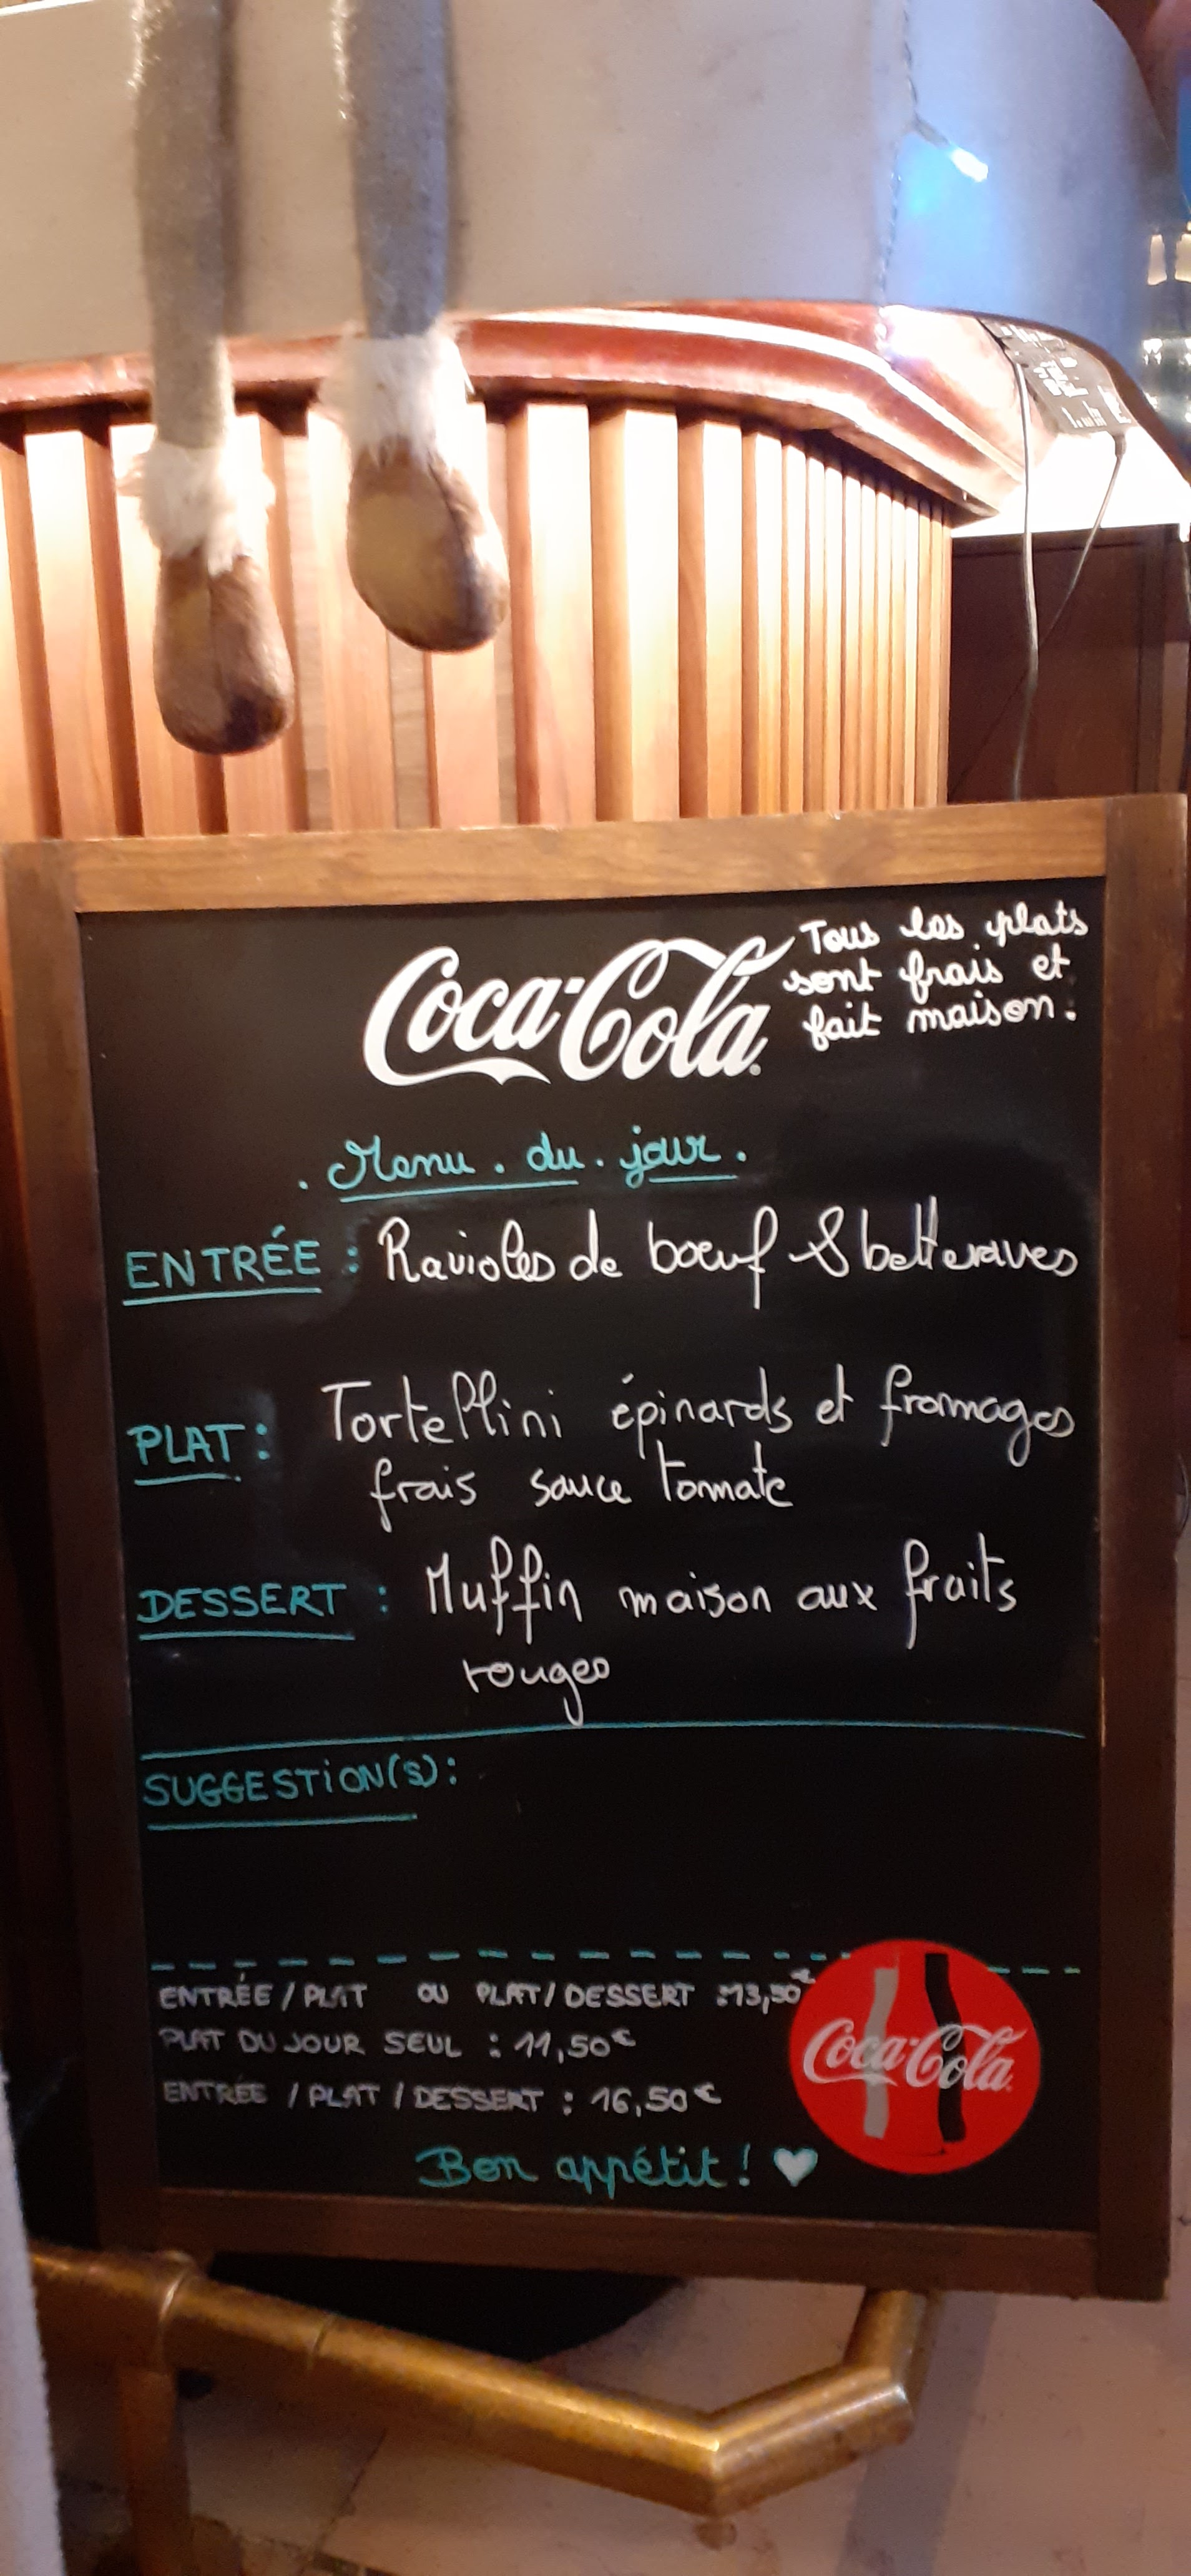 Coca-Cola
Tous les plats
sont frais et
fait maison.
. Menu . du . jour .
ENTRÉE : Ravioles de boeuf & betteraves
PLAT : Tortellini épinards et fromages
frais sauce tomate
DESSERT : Muffin maison aux fruits
rouges
SUGGESTION(S) :
ENTRÉE / PLAT OU PLAT / DESSERT : 13,50€
PLAT DU JOUR SEUL : 11,50€
ENTRÉE / PLAT / DESSERT : 16,50€
Coca-Cola
Bon appétit ! ♥